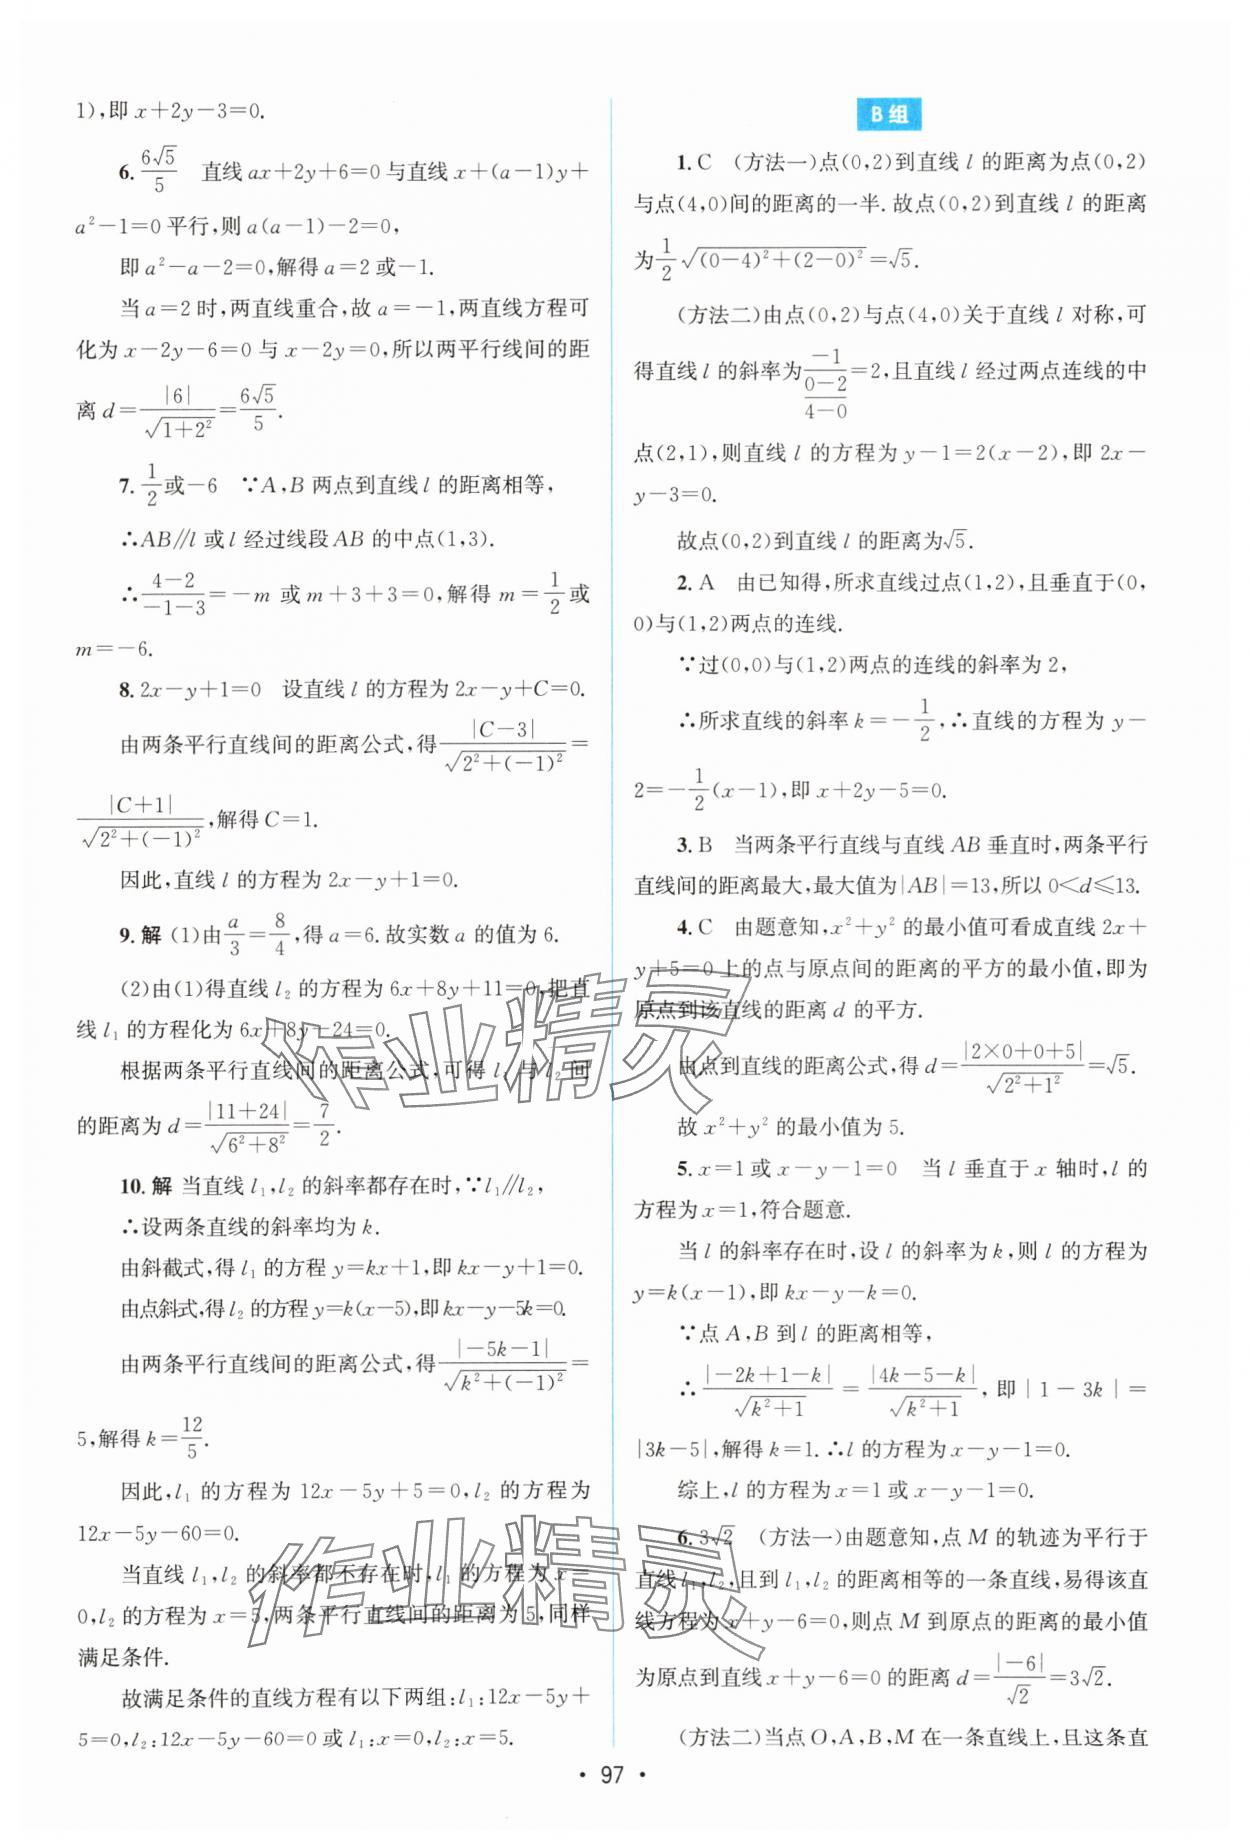 1),即 x+2y-3=0.
6. 6√5/5 直线 ax+2y+6=0与直线 x+(a-1)y+
a²-1=0平行,则 a(a-1)-2=0,
即 a²-a-2=0,解得 a=2或-1.
当 a=2时,两直线重合,故 a=-1,两直线方程可
化为 x-2y-6=0 与 x-2y=0,所以两平行线间的距
离 d=|6|/√(1+2²)=6√5/5.
7. 1/2或-6 ∵A,B 两点到直线 l 的距离相等,
∴AB∥l 或 l 经过线段 AB 的中点(1,3).
∴(4-2)/(-1-3)=-m 或 m+3+3=0,解得 m=1/2或
m=-6.
8. 2x-y+1=0 设直线 l 的方程为 2x-y+C=0.
由两条平行直线间的距离公式,得|C-3|/√(2²+(-1)²)=
|C+1|/√(2²+(-1)²),解得 C=1.
因此,直线 l 的方程为 2x-y+1=0.
9. 解 (1)由a/3=8/4,得 a=6.故实数 a 的值为 6.
(2)由(1)得直线 l₂ 的方程为 6x+8y+11=0,把直
线 l₁ 的方程化为 6x+8y-24=0.
根据两条平行直线间的距离公式,可得 l₁ 与 l₂ 间
的距离为 d=|11+24|/√(6²+8²)=7/2.
10. 解 当直线 l₁,l₂ 的斜率都存在时,∵l₁∥l₂,
∴设两条直线的斜率均为 k.
由斜截式,得 l₁ 的方程 y=kx+1,即 kx-y+1=0.
由点斜式,得 l₂ 的方程 y=k(x-5),即 kx-y-5k=0.
由两条平行直线间的距离公式,得|-5k-1|/√(k²+(-1)²)=
5,解得 k=12/5.
因此,l₁ 的方程为 12x-5y+5=0,l₂ 的方程为
12x-5y-60=0.
当直线 l₁,l₂ 的斜率都不存在时,l₁ 的方程为 x=
0,l₂ 的方程为 x=5,两条平行直线间的距离为 5,同样
满足条件.
故满足条件的直线方程有以下两组:l₁:12x-5y+
5=0,l₂:12x-5y-60=0 或 l₁:x=0,l₂:x=5.
B 组
1. C (方法一)点(0,2)到直线 l 的距离为点(0,2)
与点(4,0)间的距离的一半.故点(0,2)到直线 l 的距离
为1/2√((0-4)²+(2-0)²)=√5.
(方法二)由点(0,2)与点(4,0)关于直线 l 对称,可
得直线 l 的斜率为-1/((0-2)/(4-0))=2,且直线 l 经过两点连线的中
点(2,1),则直线 l 的方程为 y-1=2(x-2),即 2x-
y-3=0.
故点(0,2)到直线 l 的距离为√5.
2. A 由已知得,所求直线过点(1,2),且垂直于(0,
0)与(1,2)两点的连线.
∵过(0,0)与(1,2)两点的连线的斜率为 2,
∴所求直线的斜率 k=-1/2,∴直线的方程为 y-
2=-1/2(x-1),即 x+2y-5=0.
3. B 当两条平行直线与直线 AB 垂直时,两条平行
直线间的距离最大,最大值为|AB|=13,所以 0<d≤13.
4. C 由题意知,x²+y² 的最小值可看成直线 2x+
y+5=0 上的点与原点间的距离的平方的最小值,即为
原点到该直线的距离 d 的平方.
由点到直线的距离公式,得 d=|2×0+0+5|/√(2²+1²)=√5.
故 x²+y² 的最小值为 5.
5. x=1 或 x-y-1=0 当 l 垂直于 x 轴时,l 的
方程为 x=1,符合题意.
当 l 的斜率存在时,设 l 的斜率为 k,则 l 的方程为
y=k(x-1),即 kx-y-k=0.
∵点 A,B 到 l 的距离相等,
∴|-2k+1-k|/√(k²+1)=|4k-5-k|/√(k²+1),即|1-3k|=
|3k-5|,解得 k=1.∴l 的方程为 x-y-1=0.
综上,l 的方程为 x=1 或 x-y-1=0.
6. 3√2 (方法一)由题意知,点 M 的轨迹为平行于
直线 l₁,l₂,且到 l₁,l₂ 的距离相等的一条直线,易得该直
线方程为 x+y-6=0,则点 M 到原点的距离的最小值
为原点到直线 x+y-6=0 的距离 d=|-6|/√2=3√2.
(方法二)当点 O,A,B,M 在一条直线上,且这条直
· 97 ·
作业精灵
作业精灵